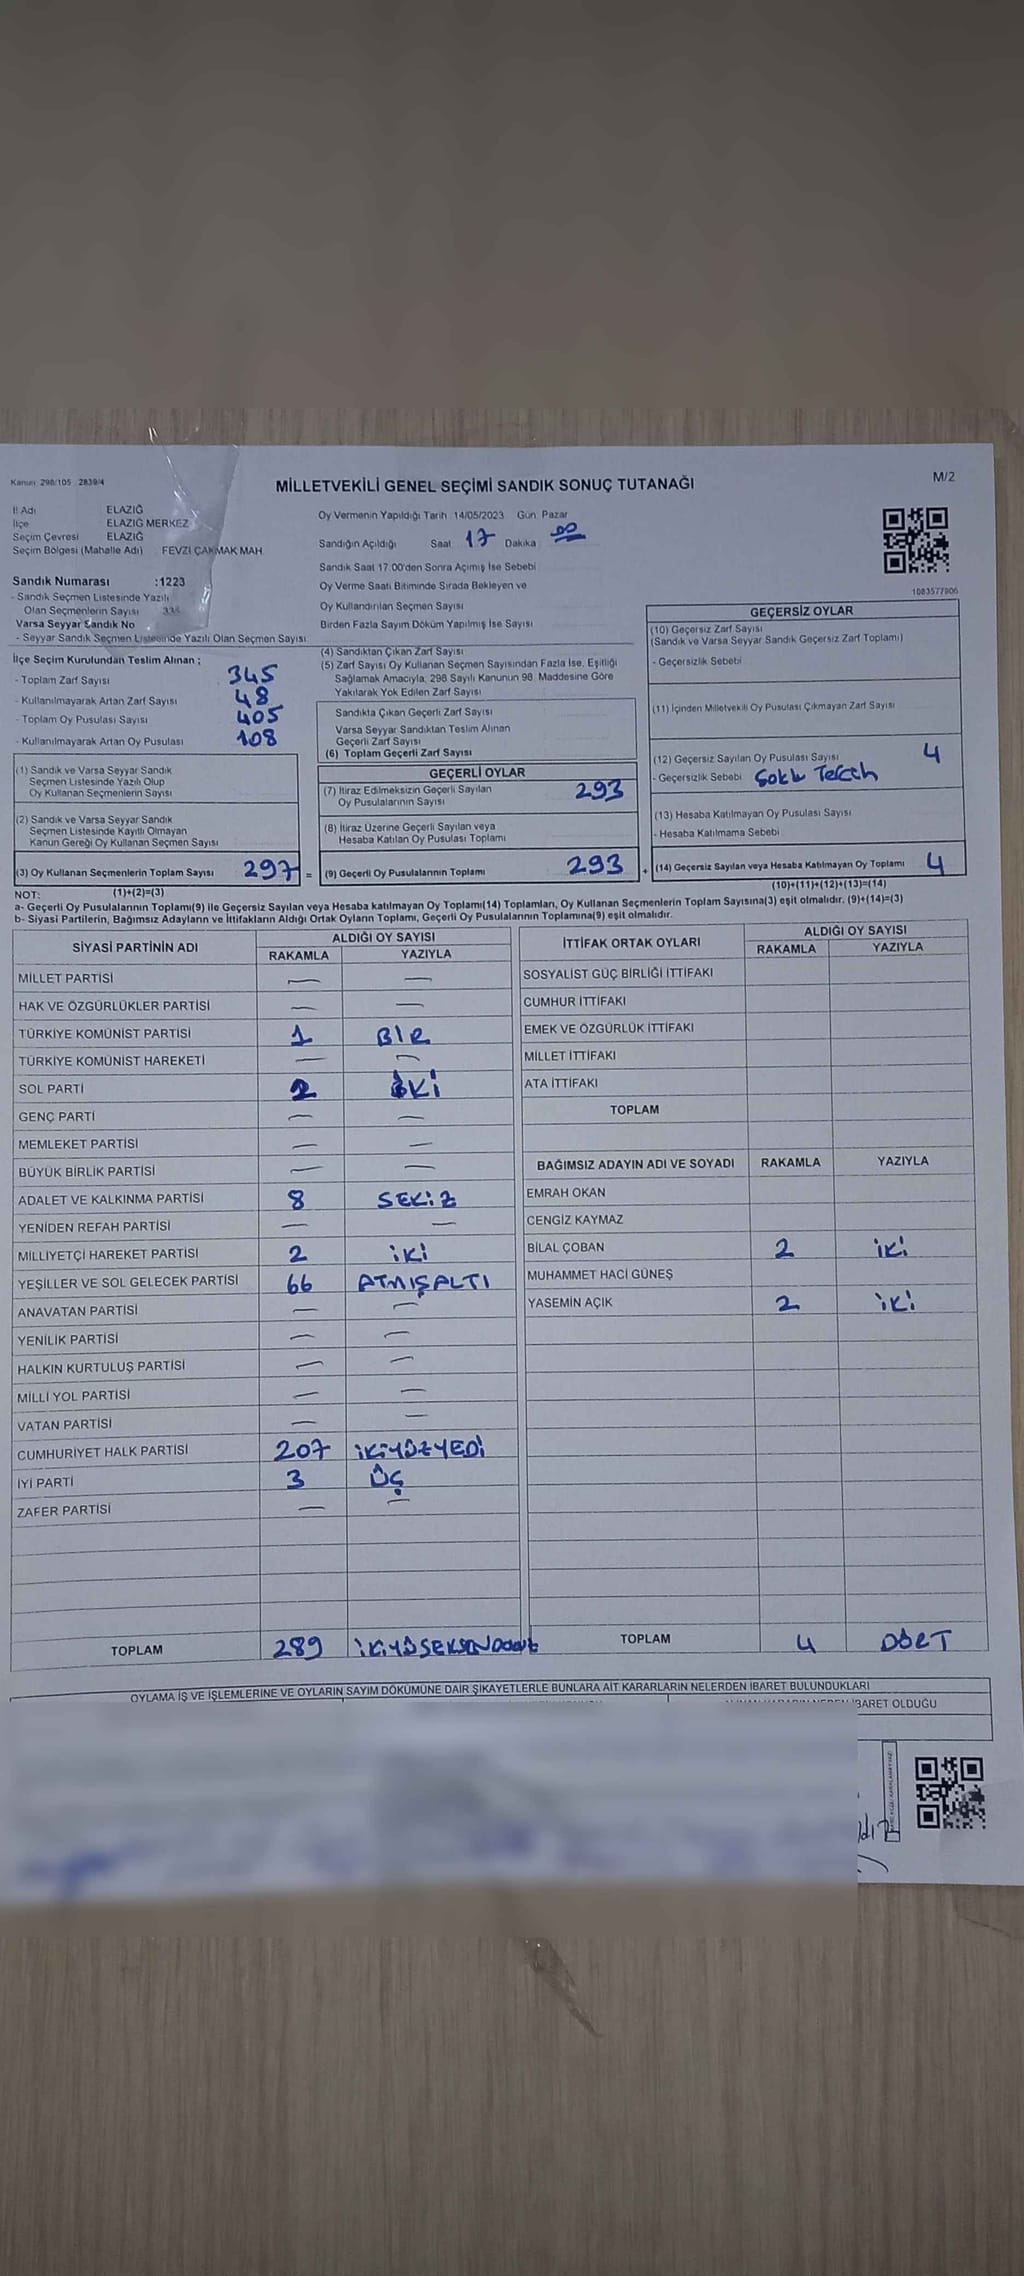 Kanun 298/105 2839/4
MİLLETVEKİLİ GENEL SEÇİMİ SANDIK SONUÇ TUTANAĞI
M/2
İl Adı ELAZIĞ
İlçe ELAZIĞ MERKEZ
Seçim Çevresi ELAZIĞ
Seçim Bölgesi (Mahalle Adı) FEVZİ ÇAKMAK MAH.
Sandık Numarası :1223
- Sandık Seçmen Listesinde Yazılı
Olan Seçmenlerin Sayısı
Varsa Seyyar Sandık No
- Seyyar Sandık Seçmen Listesinde Yazılı Olan Seçmen Sayısı
Oy Vermenin Yapıldığı Tarih 14/05/2023 Gün Pazar
Sandığın Açıldığı Saat 17 Dakika 00
Sandık Saat 17:00'den Sonra Açımış İse Sebebi
Oy Verme Saati Bitiminde Sırada Bekleyen ve
Oy Kullandırılan Seçmen Sayısı
Birden Fazla Sayım Döküm Yapılmış İse Sayısı
1083577906
İlçe Seçim Kurulundan Teslim Alınan ;
- Toplam Zarf Sayısı 345
- Kullanılmayarak Artan Zarf Sayısı 48
- Toplam Oy Pusulası Sayısı 405
- Kullanılmayarak Artan Oy Pusulası 108
(1) Sandık ve Varsa Seyyar Sandık
Seçmen Listesinde Yazılı Olup
Oy Kullanan Seçmenlerin Sayısı
(2) Sandık ve Varsa Seyyar Sandık
Seçmen Listesinde Kayıtlı Olmayan
Kanun Gereği Oy Kullanan Seçmen Sayısı
(3) Oy Kullanan Seçmenlerin Toplam Sayısı 297 =
(4) Sandıktan Çıkan Zarf Sayısı
(5) Zarf Sayısı Oy Kullanan Seçmen Sayısından Fazla İse, Eşitliği
Sağlamak Amacıyla, 298 Sayılı Kanunun 98. Maddesine Göre
Yakılarak Yok Edilen Zarf Sayısı
Sandıkta Çıkan Geçerli Zarf Sayısı
Varsa Seyyar Sandıktan Teslim Alınan
Geçerli Zarf Sayısı
(6) Toplam Geçerli Zarf Sayısı
GEÇERLİ OYLAR
(7) İtiraz Edilmeksizin Geçerli Sayılan
Oy Pusulalarının Sayısı 293
(8) İtiraz Üzerine Geçerli Sayılan veya
Hesaba Katılan Oy Pusulası Toplamı
(9) Geçerli Oy Pusulalarının Toplamı 293 +
GEÇERSİZ OYLAR
(10) Geçersiz Zarf Sayısı
(Sandık ve Varsa Seyyar Sandık Geçersiz Zarf Toplamı)
- Geçersizlik Sebebi
(11) İçinden Milletvekili Oy Pusulası Çıkmayan Zarf Sayısı
(12) Geçersiz Sayılan Oy Pusulası Sayısı 4
- Geçersizlik Sebebi
(13) Hesaba Katılmayan Oy Pusulası Sayısı
- Hesaba Katılmama Sebebi
(14) Geçersiz Sayılan veya Hesaba Katılmayan Oy Toplamı 4
NOT: (1)+(2)=(3)
(10)+(11)+(12)+(13)=(14)
a- Geçerli Oy Pusulalarının Toplamı(9) ile Geçersiz Sayılan veya Hesaba katılmayan Oy Toplamı(14) Toplamları, Oy Kullanan Seçmenlerin Toplam Sayısına(3) eşit olmalıdır. (9)+(14)=(3)
b- Siyasi Partilerin, Bağımsız Adayların ve İttifakların Aldığı Ortak Oyların Toplamı, Geçerli Oy Pusulalarının Toplamına(9) eşit olmalıdır.
SİYASİ PARTİNİN ADI ALDIĞI OY SAYISI
RAKAMLA YAZIYLA
MİLLET PARTİSİ — —
HAK VE ÖZGÜRLÜKLER PARTİSİ — —
TÜRKİYE KOMÜNİST PARTİSİ 1 BİR
TÜRKİYE KOMÜNİST HAREKETİ — —
SOL PARTİ 2 İKİ
GENÇ PARTİ — —
MEMLEKET PARTİSİ — —
BÜYÜK BİRLİK PARTİSİ — —
ADALET VE KALKINMA PARTİSİ 8 SEKİZ
YENİDEN REFAH PARTİSİ — —
MİLLİYETÇİ HAREKET PARTİSİ 2 İKİ
YEŞİLLER VE SOL GELECEK PARTİSİ 66 ATMIŞALTI
ANAVATAN PARTİSİ — —
YENİLİK PARTİSİ — —
HALKIN KURTULUŞ PARTİSİ — —
MİLLİ YOL PARTİSİ — —
VATAN PARTİSİ — —
CUMHURİYET HALK PARTİSİ 207 İKİYÜZYEDİ
İYİ PARTİ 3 ÜÇ
ZAFER PARTİSİ — —
TOPLAM 289
İTTİFAK ORTAK OYLARI ALDIĞI OY SAYISI
RAKAMLA YAZIYLA
SOSYALİST GÜÇ BİRLİĞİ İTTİFAKI
CUMHUR İTTİFAKI
EMEK VE ÖZGÜRLÜK İTTİFAKI
MİLLET İTTİFAKI
ATA İTTİFAKI
TOPLAM
BAĞIMSIZ ADAYIN ADI VE SOYADI RAKAMLA YAZIYLA
EMRAH OKAN
CENGİZ KAYMAZ
BİLAL ÇOBAN 2 İKİ
MUHAMMET HACİ GÜNEŞ
YASEMİN AÇIK 2 İKİ
TOPLAM 4 DÖRT
OYLAMA İŞ VE İŞLEMLERİNE VE OYLARIN SAYIM DÖKÜMÜNE DAİR ŞİKAYETLERLE BUNLARA AİT KARARLARIN NELERDEN İBARET BULUNDUKLARI
İBARET OLDUĞU